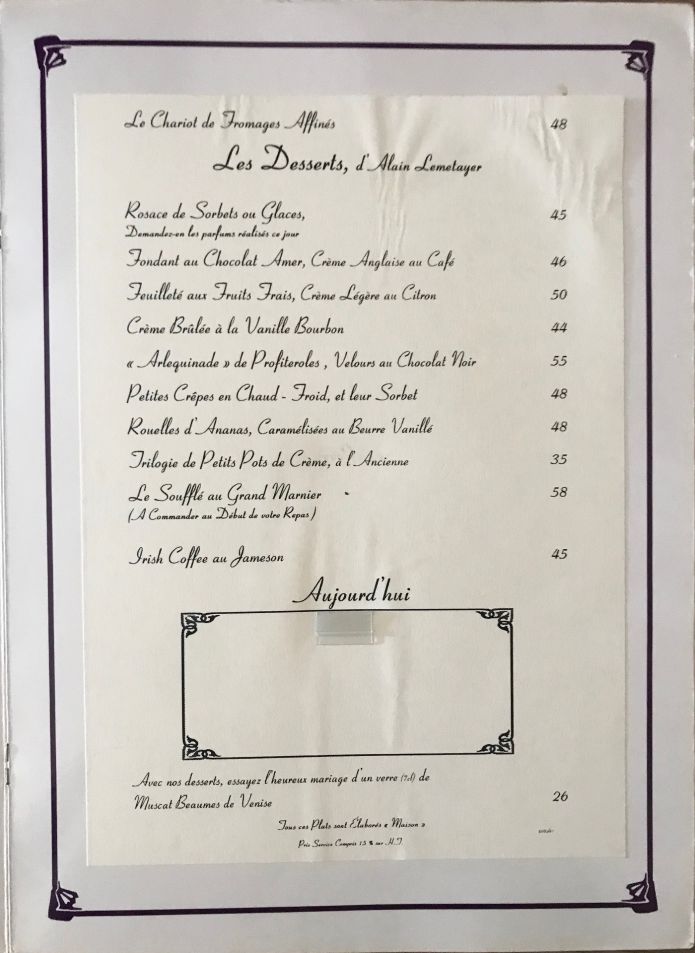 Le Chariot de Fromages Affinés 48
Les Desserts, d'Alain Lemetayer
Rosace de Sorbets ou Glaces, 45
Demandez-en les parfums réalisés ce jour
Fondant au Chocolat Amer, Crème Anglaise au Café 46
Feuilleté aux Fruits Frais, Crème Légère au Citron 50
Crème Brûlée à la Vanille Bourbon 44
« Arlequinade » de Profiteroles , Velours au Chocolat Noir 55
Petites Crêpes en Chaud - Froid, et leur Sorbet 48
Rouelles d'Ananas, Caramélisées au Beurre Vanillé 48
Trilogie de Petits Pots de Crème, à l'Ancienne 35
Le Soufflé au Grand Marnier 58
(A Commander au Début de votre Repas)
Irish Coffee au Jameson 45
Aujourd'hui
Avec nos desserts, essayez l'heureux mariage d'un verre (7cl) de
Muscat Beaumes de Venise 26
Tous ces Plats sont Elaborés « Maison »
Prix Service Compris 15 % sur H.T.